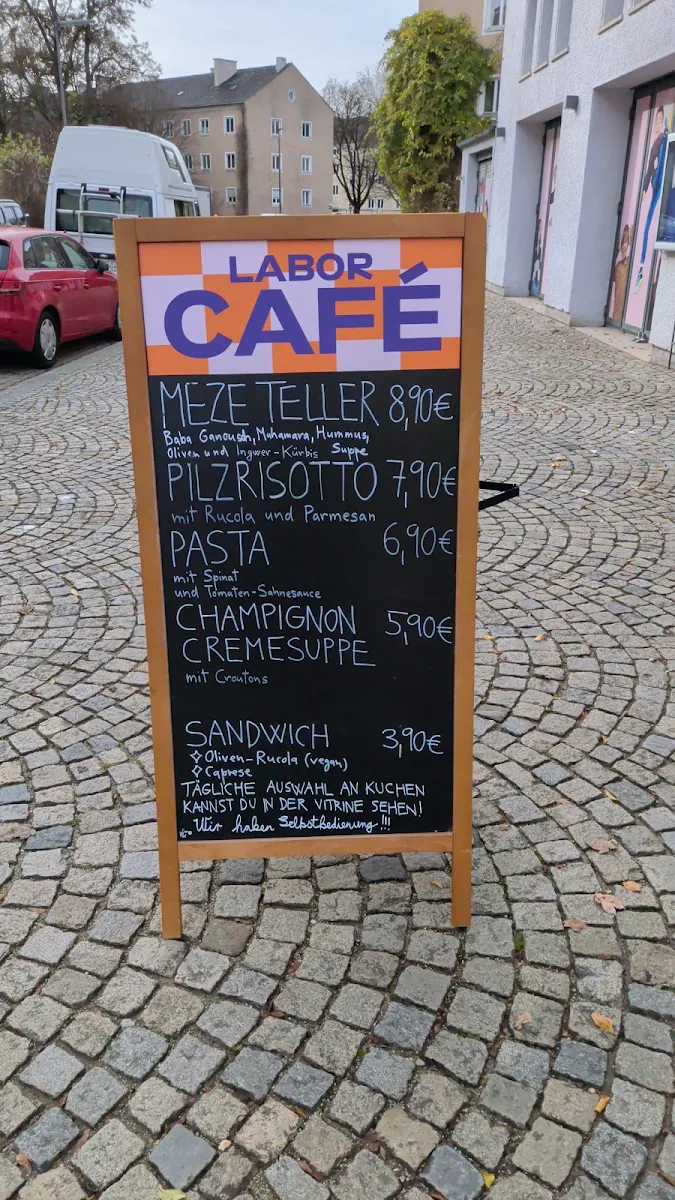 LABOR
CAFÉ
MEZE TELLER 8,90€
Baba Ganoush, Muhamara, Hummus,
Oliven und Ingwer-Kürbis Suppe
PILZRISOTTO 7,90€
mit Rucola und Parmesan
PASTA 6,90€
mit Spinat
und Tomaten-Sahnesauce
CHAMPIGNON 5,90€
CREMESUPPE
mit Croutons
SANDWICH 3,90€
Oliven-Rucola (vegan)
Caprese
TÄGLICHE AUSWAHL AN KUCHEN
KANNST DU IN DER VITRINE SEHEN!
Wir haben Selbstbedienung!!!